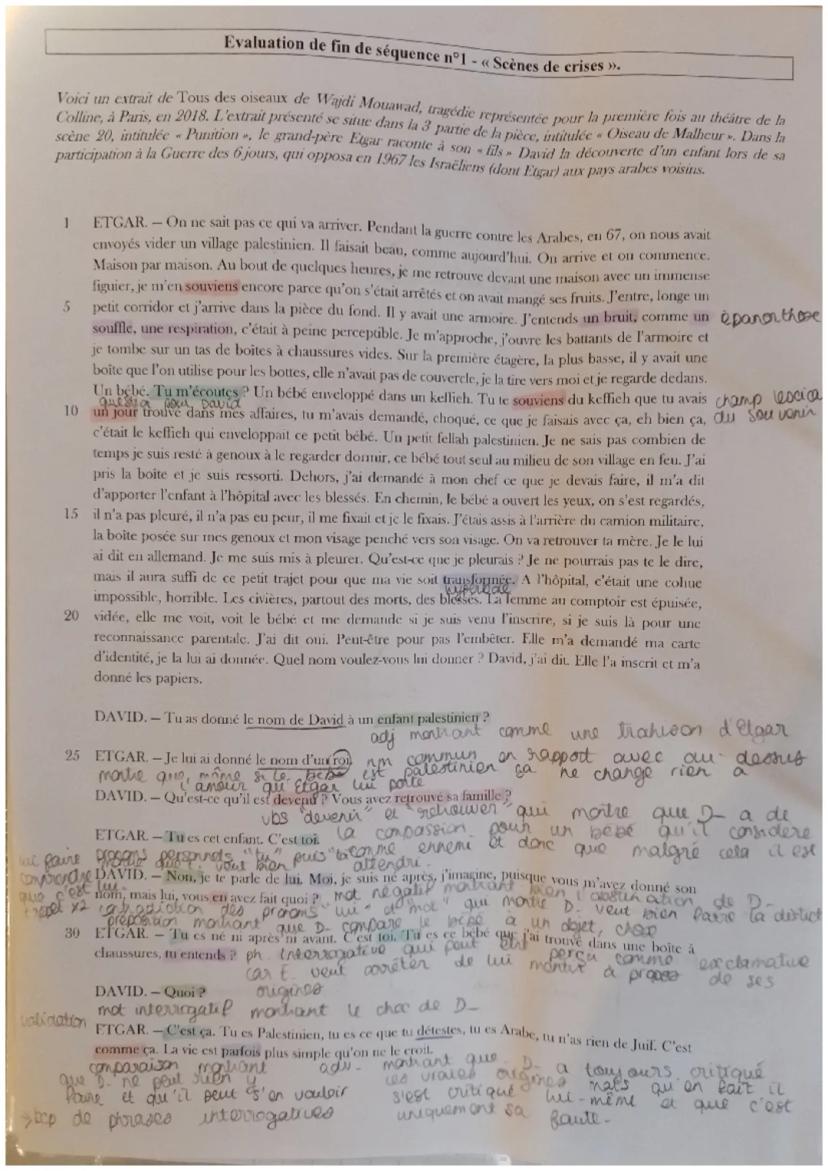 Evaluation de fin de séquence n°1 - « Scènes de crises ».
Voici un extrait de Tous des oiseaux de Wajdi Mouawad, tragédie représentée pour la première fois au théâtre de la
Colline, à Paris, en 2018. L'extrait présenté se situe dans la 3 partie de la pièce, intitulée « Oiseau de Malheur ». Dans la
scène 20, intitulée « Punition », le grand-père Etgar raconte à son « fils » David la découverte d'un enfant lors de sa
participation à la Guerre des 6 jours, qui opposa en 1967 les Israëliens (dont Etgar) aux pays arabes voisins.
1 ETGAR. – On ne sait pas ce qui va arriver. Pendant la guerre contre les Arabes, en 67, on nous avait
envoyés vider un village palestinien. Il faisait beau, comme aujourd'hui. On arrive et on commence.
Maison par maison. Au bout de quelques heures, je me retrouve devant une maison avec un immense
figuier, je m'en souviens encore parce qu'on s'était arrêtés et on avait mangé ses fruits. J'entre, longe un
5 petit corridor et j'arrive dans la pièce du fond. Il y avait une armoire. J'entends un bruit, comme un épanorthose
souffle, une respiration, c'était à peine perceptible. Je m'approche, j'ouvre les battants de l'armoire et
je tombe sur un tas de boîtes à chaussures vides. Sur la première étagère, la plus basse, il y avait une
boîte que l'on utilise pour les bottes, elle n'avait pas de couvercle, je la tire vers moi et je regarde dedans.
Un bébé. Tu m'écoutes ? Un bébé enveloppé dans un keffieh. Tu te souviens du keffieh que tu avais champ lexica
question pour David
10 un jour trouvé dans mes affaires, tu m'avais demandé, choqué, ce que je faisais avec ça, eh bien ça, du souvenir
c'était le keffieh qui enveloppait ce petit bébé. Un petit fellah palestinien. Je ne sais pas combien de
temps je suis resté à genoux à le regarder dormir, ce bébé tout seul au milieu de son village en feu. J'ai
pris la boîte et je suis ressorti. Dehors, j'ai demandé à mon chef ce que je devais faire, il m'a dit
d'apporter l'enfant à l'hôpital avec les blessés. En chemin, le bébé a ouvert les yeux, on s'est regardés,
15 il n'a pas pleuré, il n'a pas eu peur, il me fixait et je le fixais. J'étais assis à l'arrière du camion militaire,
la boîte posée sur mes genoux et mon visage penché vers son visage. On va retrouver ta mère. Je le lui
ai dit en allemand. Je me suis mis à pleurer. Qu'est-ce que je pleurais ? Je ne pourrais pas te le dire,
mais il aura suffi de ce petit trajet pour que ma vie soit transformée. A l'hôpital, c'était une cohue
hyperbole
impossible, horrible. Les civières, partout des morts, des blessés. La femme au comptoir est épuisée,
20 vidée, elle me voit, voit le bébé et me demande si je suis venu l'inscrire, si je suis là pour une
reconnaissance parentale. J'ai dit oui. Peut-être pour pas l'embêter. Elle m'a demandé ma carte
d'identité, je la lui ai donnée. Quel nom voulez-vous lui donner ? David, j'ai dit. Elle l'a inscrit et m'a
donné les papiers.
DAVID. – Tu as donné le nom de David à un enfant palestinien ?
adj montrant comme une trahison d'Etgar
25 ETGAR. – Je lui ai donné le nom d'un roi. nm commun en rapport avec au-dessus
montre que, même si le bébé est palestinien ça ne change rien à
l'amour qu'Etgar lui porte
DAVID. – Qu'est-ce qu'il est devenu ? Vous avez retrouvé sa famille ?
vbs "devenir" et "retrouver" qui montre que D- a de
ETGAR. – Tu es cet enfant. C'est toi. la compassion pour un bébé qu'il considère
pronoms personnels "tu" puis "toi" comme ennemi et donc que malgré cela il est
lui faire attendri.
comprendre DAVID. – Non, je te parle de lui. Moi, je suis né après, j'imagine, puisque vous m'avez donné son
que c'est lui
nom, mais lui, vous en avez fait quoi ? mot négatif montrant bien l'obstination de D-
répét x2 contradiction des pronoms "lui" et "moi" qui montre D. veut bien faire la distinct
préposition montrant que D- compare le bébé à un objet, chose
30 ETGAR. – Tu es né ni après ni avant. C'est toi. Tu es ce bébé que j'ai trouvé dans une boîte à
chaussures, tu entends ? ph. interrogative qui peut être perçu comme exclamative
car E. veut arrêter de lui mentir à propos de ses
DAVID. – Quoi ? origines
mot interrogatif montrant le choc de D-
validation
ETGAR. – C'est ça. Tu es Palestinien, tu es ce que tu détestes, tu es Arabe, tu n'as rien de Juif. C'est
comme ça. La vie est parfois plus simple qu'on ne le croit.
comparaison montrant adv- montrant que D- a toujours critiqué
que D- ne peut rien y ces vraies origines mais qu'en fait il
faire et qu'il peut s'en vouloir s'est critiqué lui-même et que c'est
→ bcp de phrases interrogatives uniquement sa faute.